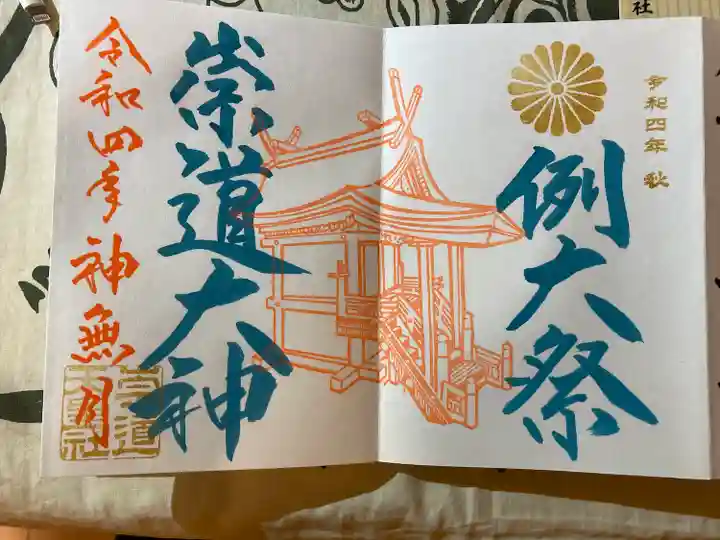 令和四年 秋
例大祭
崇道大神
令和四年 神無月
崇道
天皇社
社